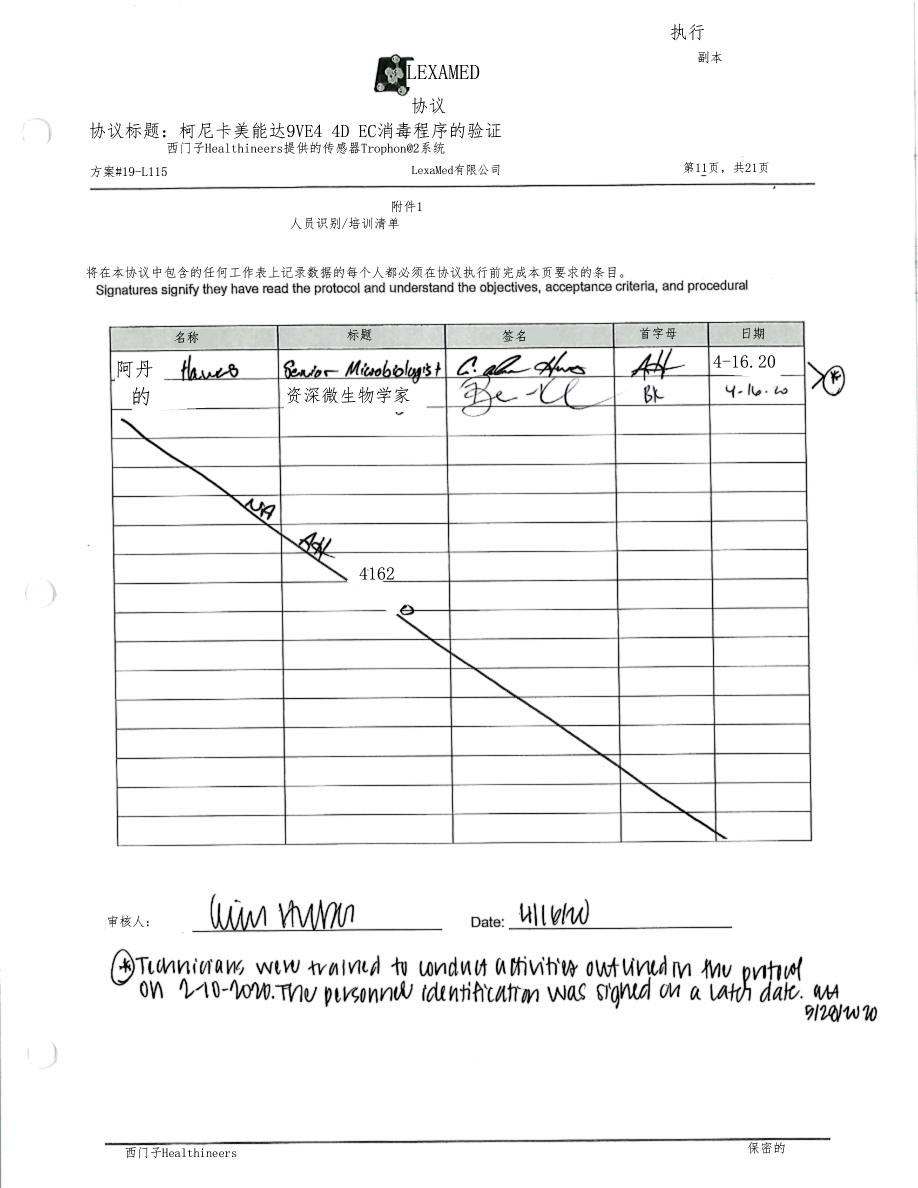 执行
副本
LEXAMED
协议
协议标题：柯尼卡美能达9VE4 4D EC消毒程序的验证
西门子Healthineers提供的传感器Trophon@2系统
方案#19-L115 LexaMed有限公司 第11页，共21页
附件1
人员识别/培训清单
将在本协议中包含的任何工作表上记录数据的每个人都必须在协议执行前完成本页要求的条目。
Signatures signify they have read the protocol and understand the objectives, acceptance criteria, and procedural
名称 标题 签名 首字母 日期
阿丹 Hawes Senior Microbiologist AH 4-16.20
的 资深微生物学家 BK 4-16-20
*
NA
AH
4162
0
审核人： Date: 4/16/20
* Technicians were trained to conduct activities outlined in the protocol
on 2-10-2020. The personnel identification was signed on a later date.
5/28/2020
西门子Healthineers 保密的